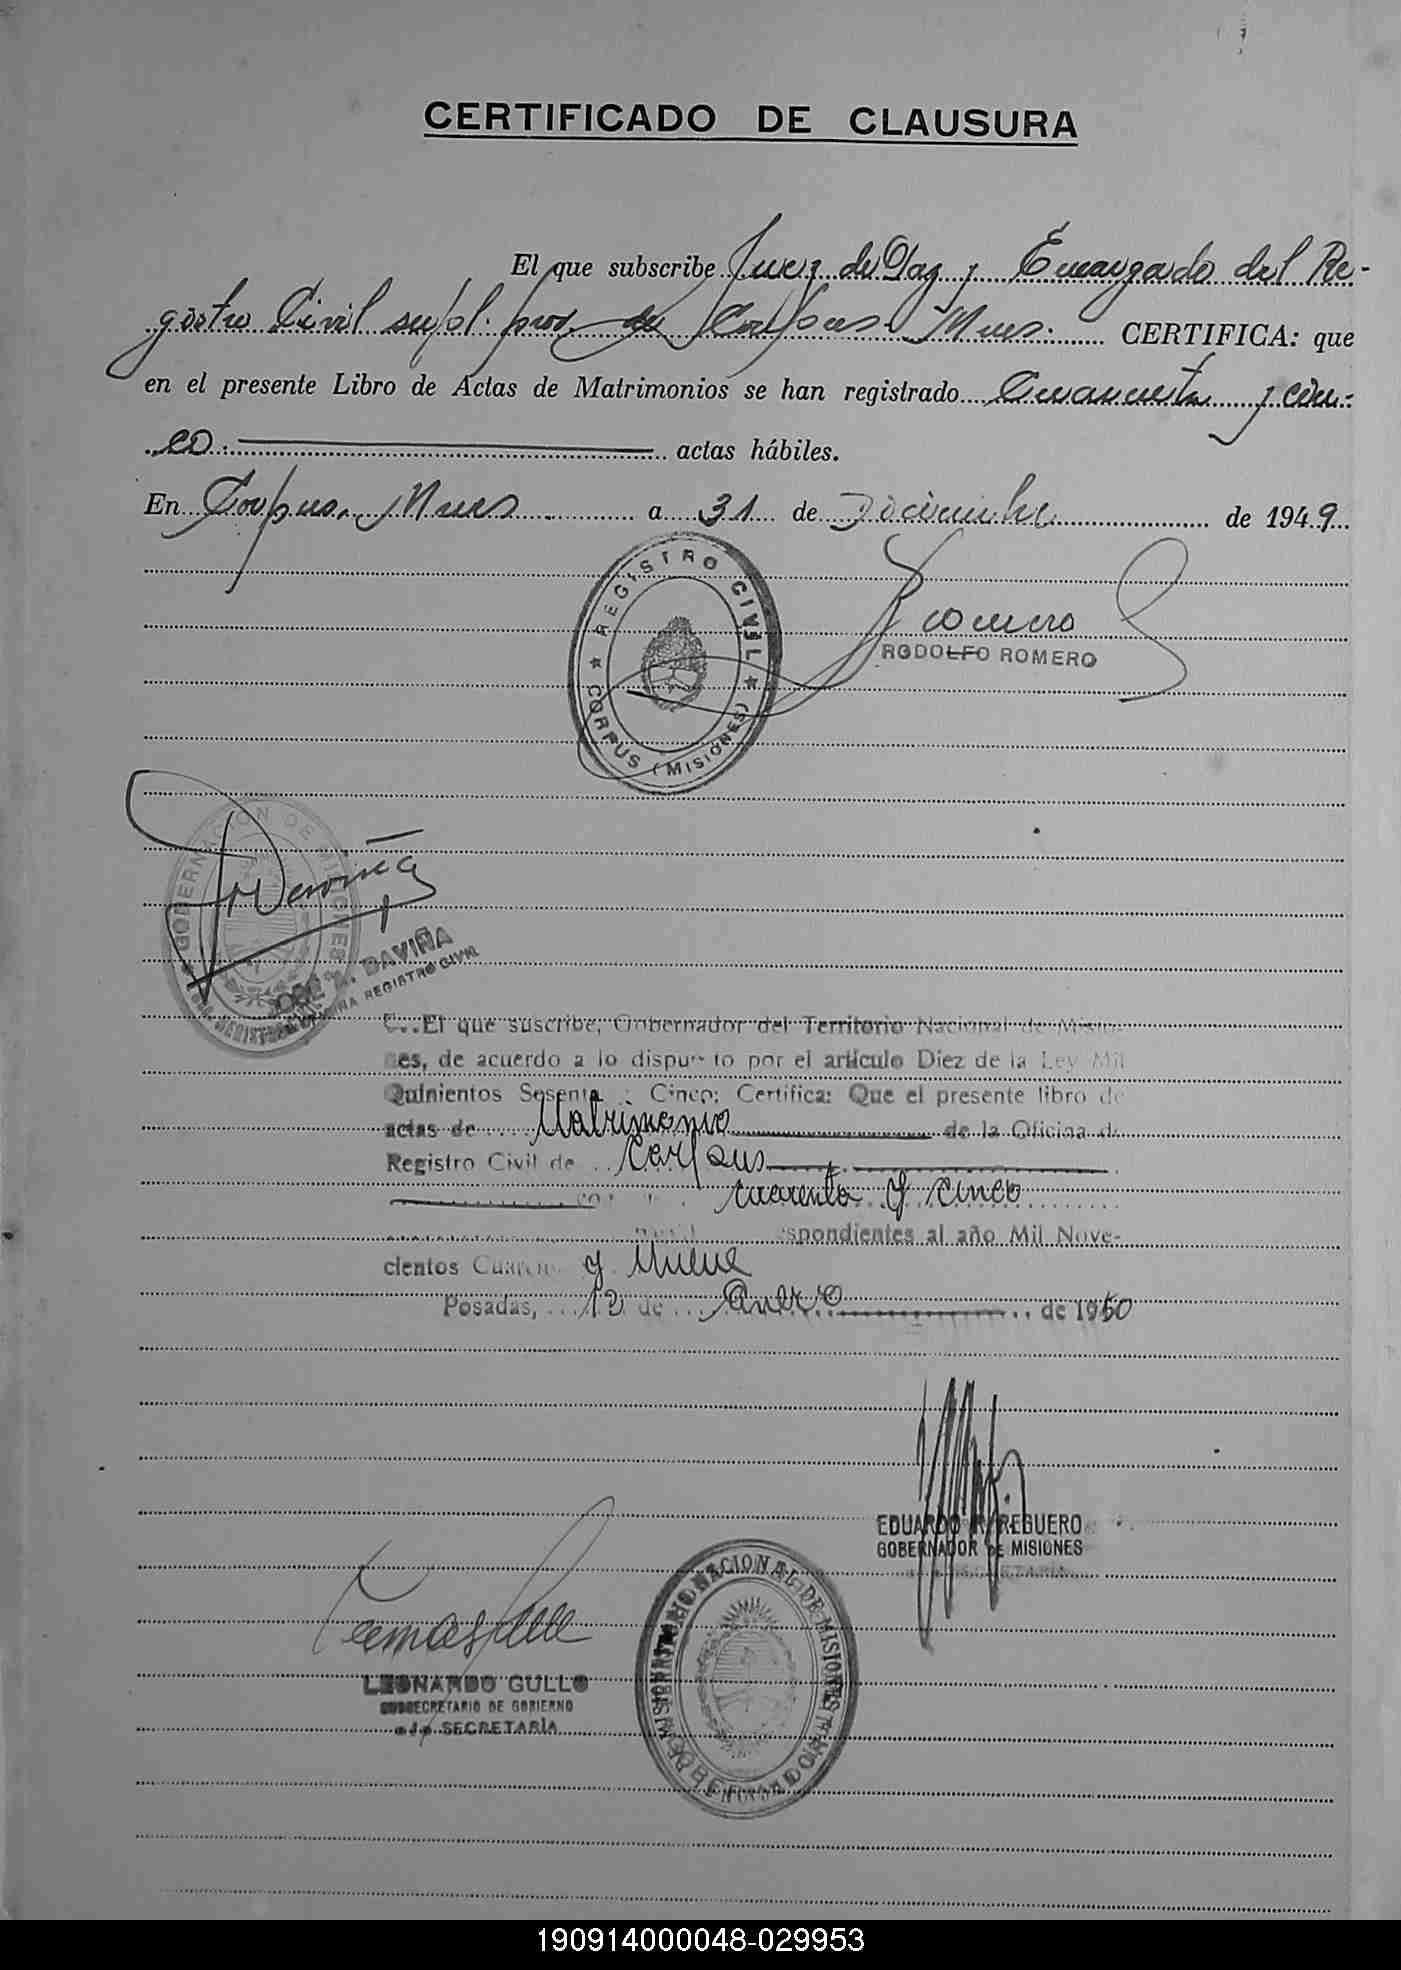 CERTIFICADO DE CLAUSURA
El que subscribe Juez de Paz y Encargado del Re-
gistro Civil supl. prov. de Corpus, Mnes. CERTIFICA: que
en el presente Libro de Actas de Matrimonios se han registrado Cuarenta y cin-
co. actas hábiles.
En Corpus, Mnes a 31 de Diciembre de 1949
REGISTRO CIVIL
CORPUS (MISIONES)
Romero
RODOLFO ROMERO
GOBERNACIÓN DE MISIONES
Daviña
JOSE DAVIÑA
REGISTRO CIVIL
El que suscribe, Gobernador del Territorio Nacional de Misio-
nes, de acuerdo a lo dispuesto por el artículo Diez de la Ley Mil
Quinientos Sesenta y Cinco; Certifica: Que el presente libro de
actas de Matrimonio de la Oficina de
Registro Civil de Corpus
cuarenta y cinco
spondientes al año Mil Nove-
cientos Cuarenta y Nueve
Posadas, 12 de Enero de 1950
EDUARDO REGUERO
GOBERNADOR DE MISIONES
LEONARDO GULLO
SUBSECRETARIO DE GOBIERNO
a/c. SECRETARÍA
TERRITORIO NACIONAL DE MISIONES
GOBERNADOR
190914000048-029953